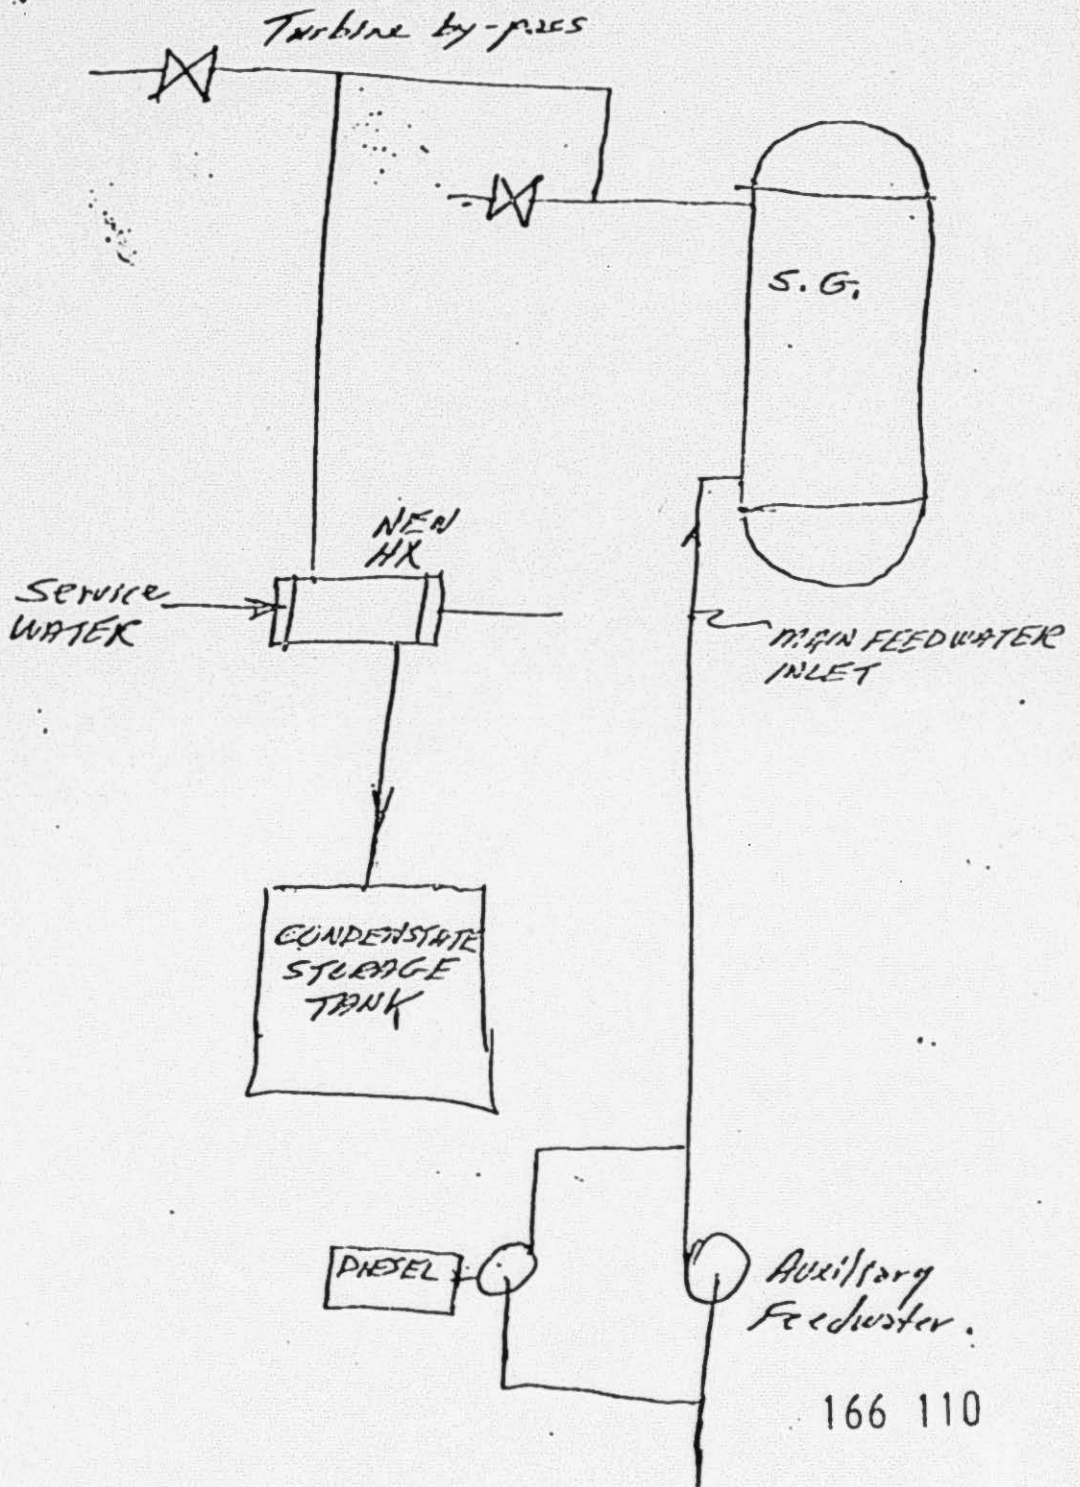 Turbine by-pass
S. G.
NEW
HX
Service
WATER
MAIN FEEDWATER
INLET
CONDENSTATE
STORAGE
TANK
DIESEL
Auxiliary
Feedwater.
166 110